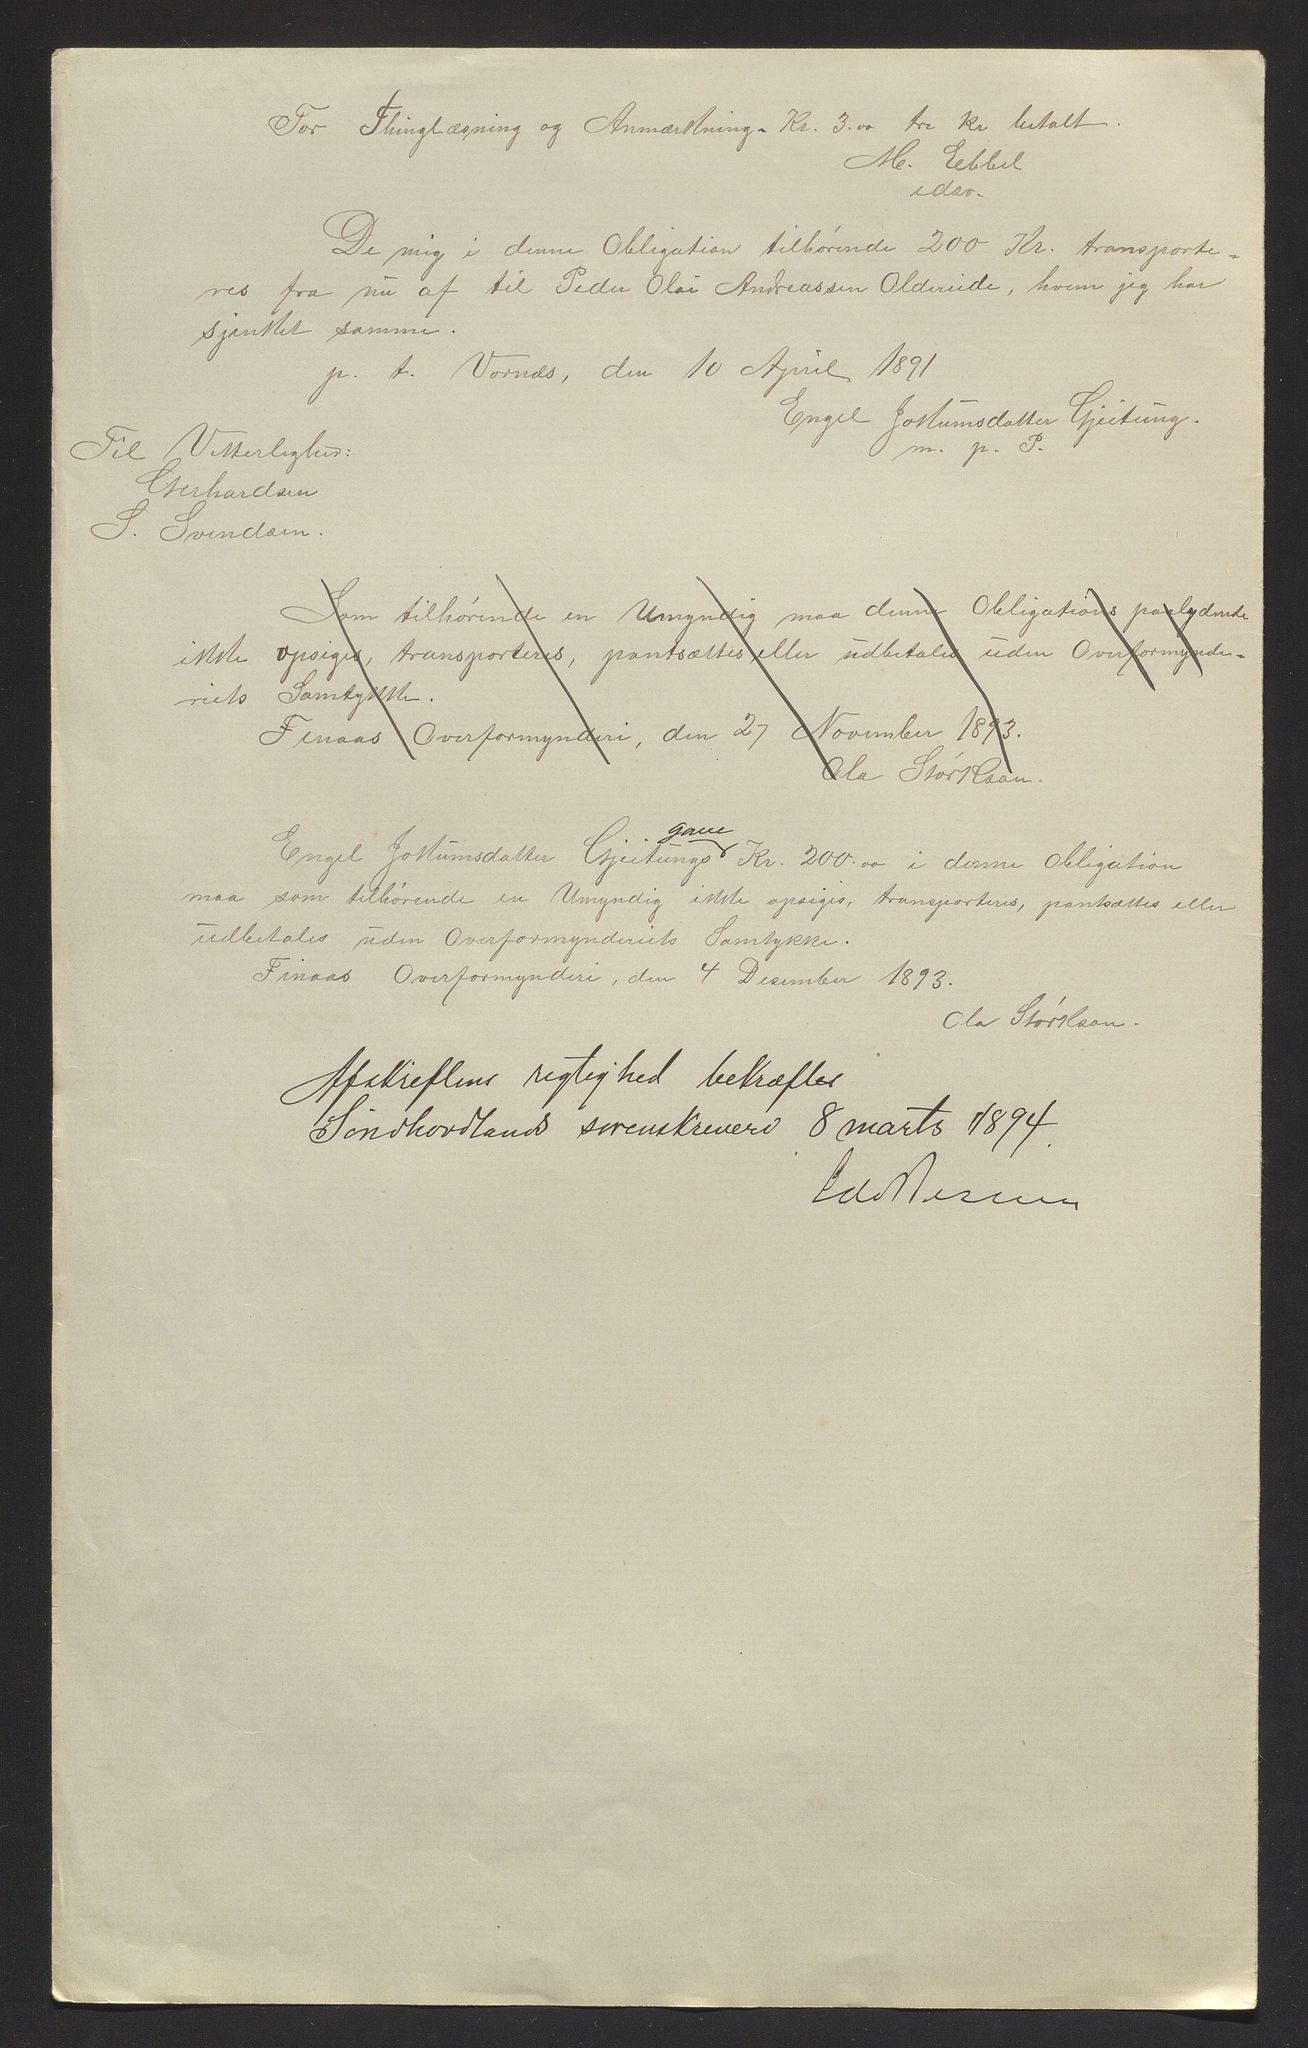 For Thinglæsning og Anmærkning - Kr. 3.00 tre kr betalt.
M. Ebbel
edsv.
De mig i denne Obligation tilhørende 200 Kr. transporte=
res fra nu af til Peder Olai Andreassen Oldereide, hvem jeg har
sjenket samme.
p. t. Vornæs, den 10 April 1891
Engel Jokumsdatter Gjeitung.
m. p. P.
Til Vitterlighed:
Gerhardsen
S. Svendsen.
Som tilhørende en Umyndig maa denne Obligations paalydende
ikke opsiges, transporteres, pantsættes eller udbetales uden Overformynde=
riets Samtykke.
Finaas Overformynderi, den 27 November 1893.
Ola Størkson.
gave
Engel Jokumsdatter Gjeitungs Kr. 200.00 i denne Obligation
maa som tilhørende en Umyndig ikke opsiges, transporteres, pantsættes eller
udbetales uden Overformynderiets Samtykke.
Finaas Overformynderi, den 4 Desember 1893.
Ola Størkson.
Afskreftens rigtighed bekræftes
Søndhordlands sorenskriveri 8 marts 1894.